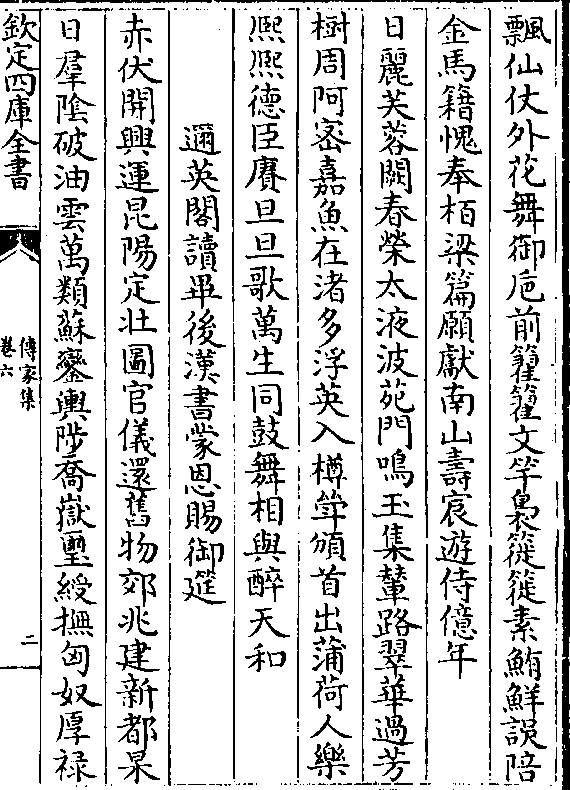 飄仙仗外花舞御巵前籊籊文竿裊簁簁素鮪鮮誤陪
金馬籍愧奉栢梁篇願獻南山壽宸遊侍億年
日麗芙蓉闕春榮太液波苑門鳴玉集輦路翠華過芳
樹周阿宻嘉魚在渚多浮英入樽斝頒首出蒲荷人樂
熙熙德臣賡旦旦歌萬生同鼓舞相與醉天和
邇英閣讀畢後漢書蒙恩賜御筵
赤伏開興運昆陽定壮圖官儀還舊物郊兆建新都杲
日羣隂破油雲萬類蘇鑾輿陟喬嶽璽綬撫匈奴厚禄
欽定四庫全書
傳家集
卷六
二